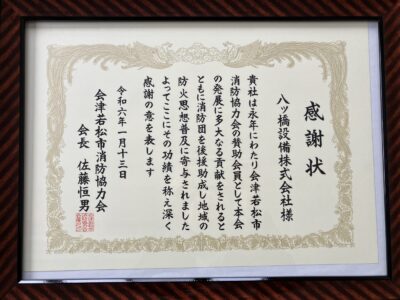 感謝状
八ッ橋設備株式会社様
貴社は永年にわたり会津若松市
消防協力会の賛助会員として本会
の発展に多大なる貢献をされると
ともに消防団を後援助成し地域の
防火思想普及に寄与されました
よってここにその功績を称え深く
感謝の意を表します
令和六年一月十三日
会津若松市消防協力会
会長 佐藤恒男